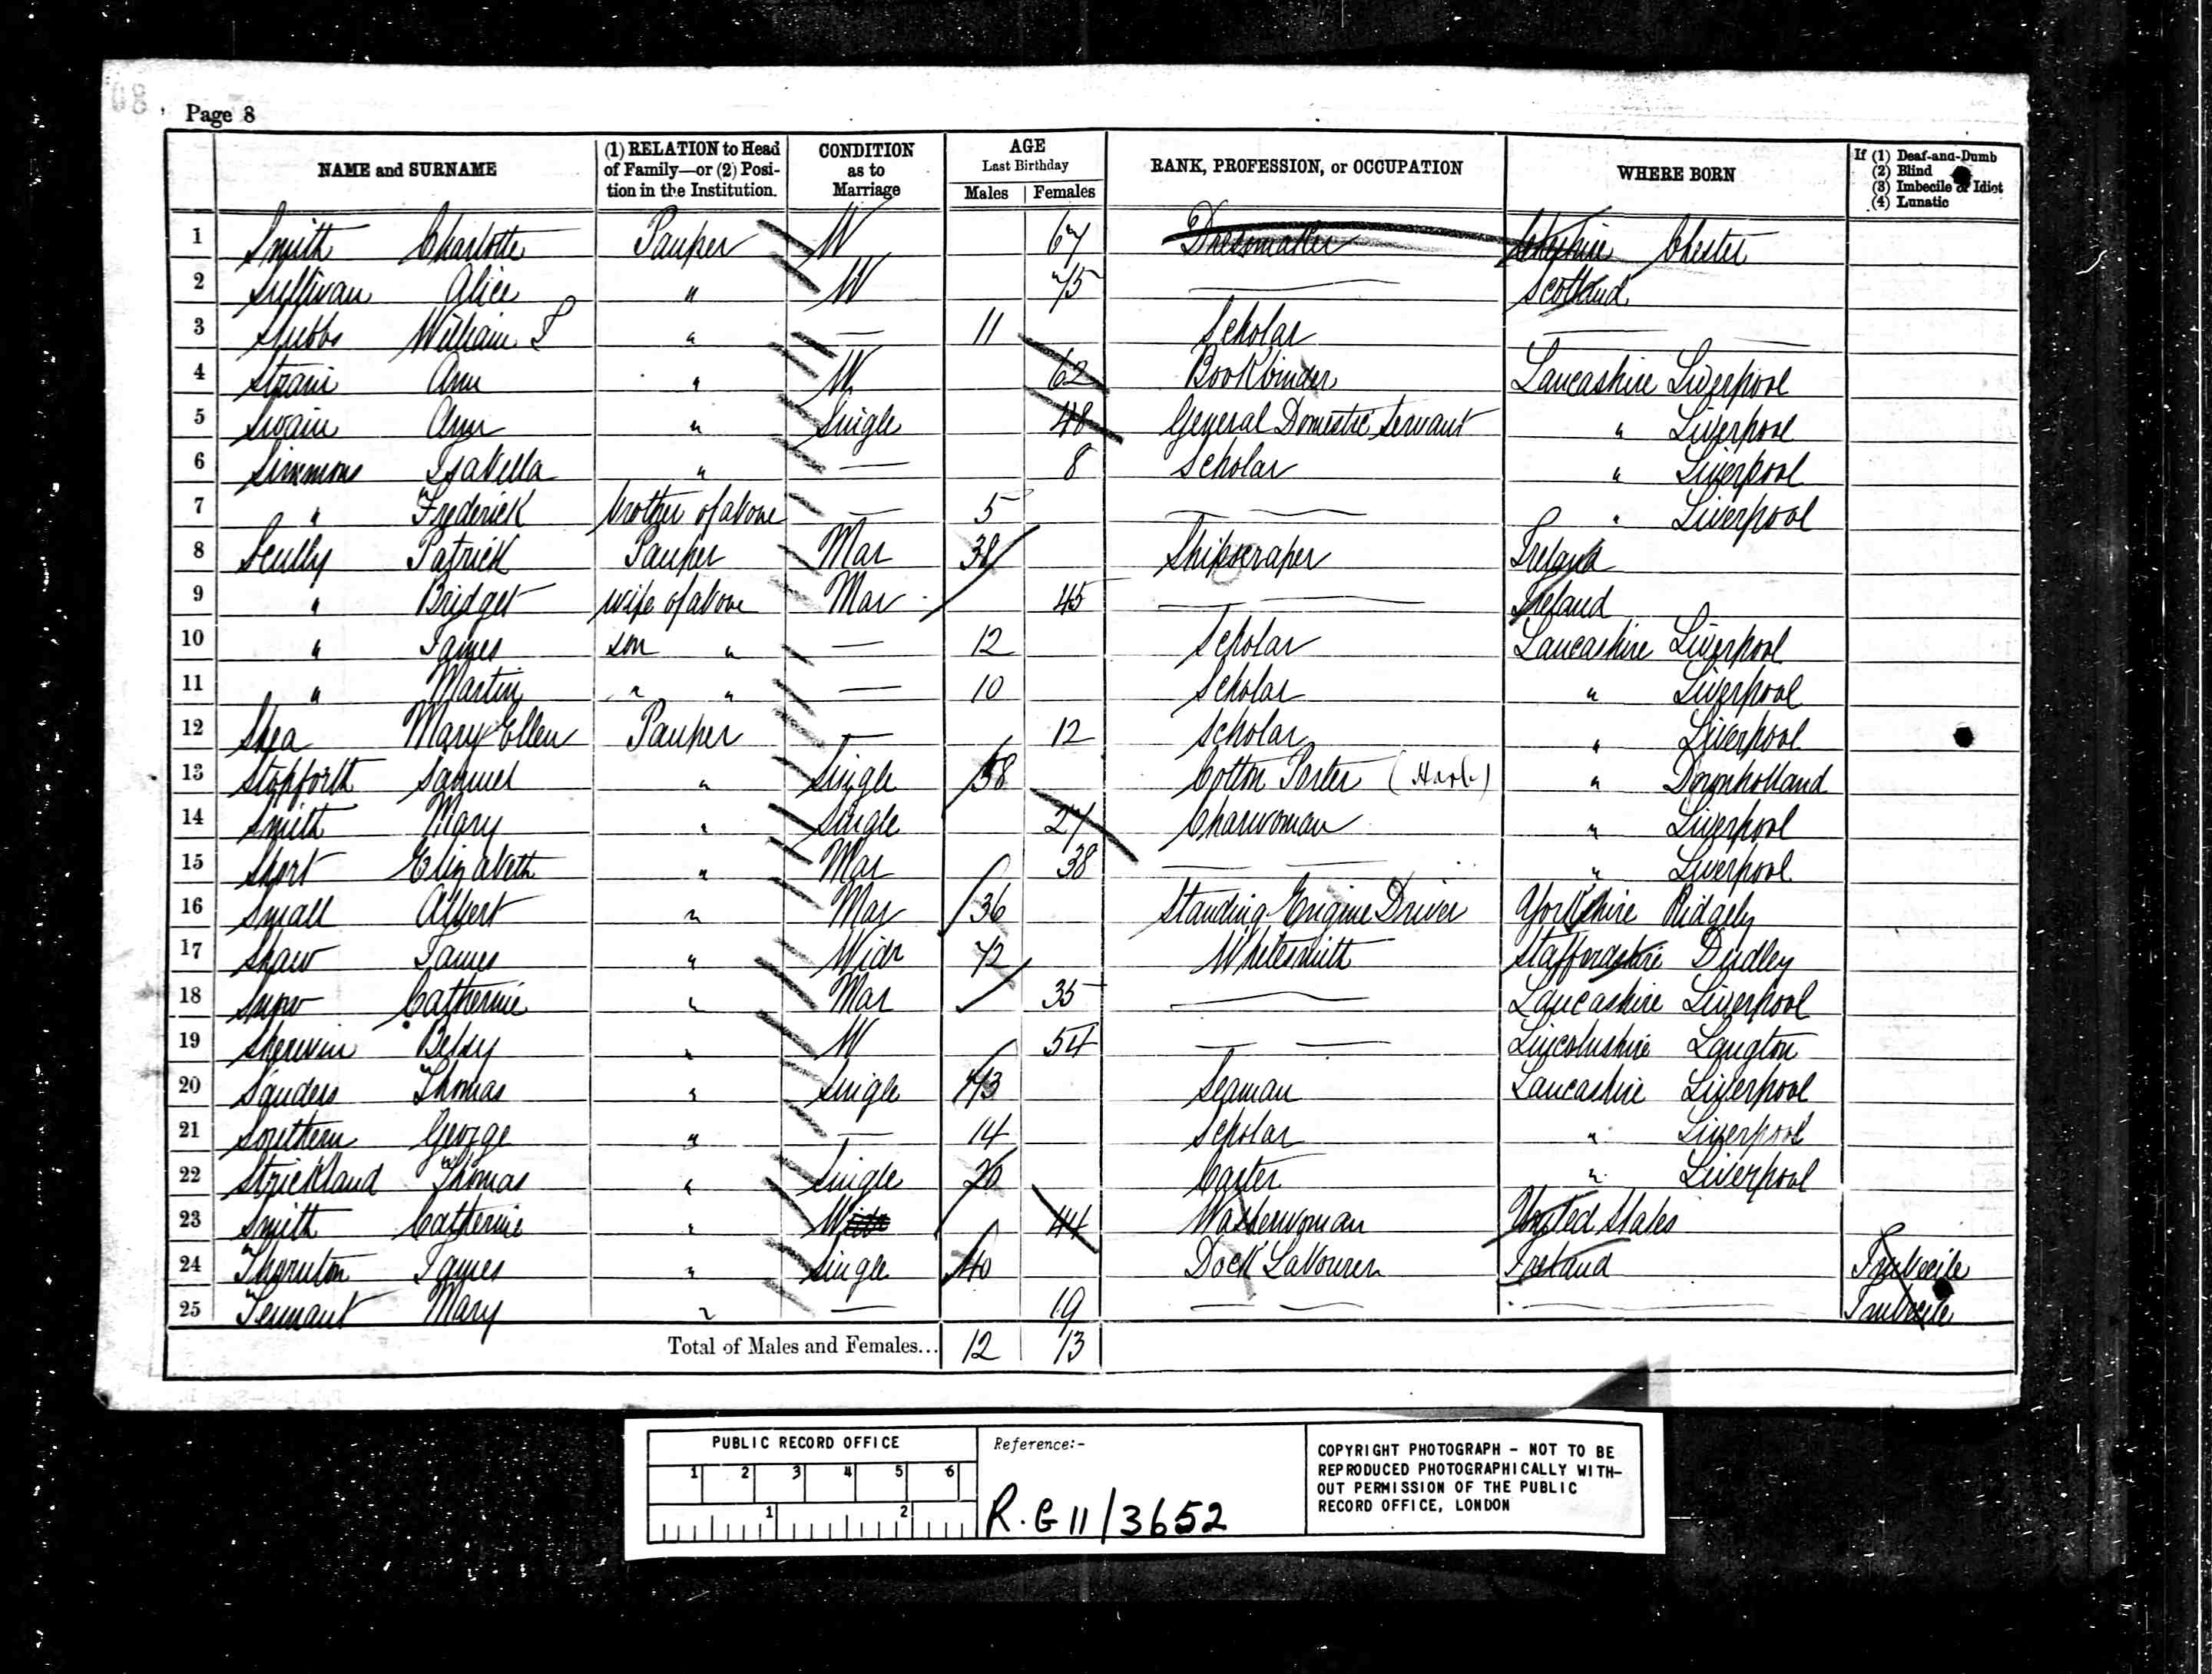 Page 8
NAME and SURNAME (1) RELATION to Head of Family—or (2) Position in the Institution. CONDITION as to Marriage AGE Last Birthday Males Females RANK, PROFESSION, or OCCUPATION WHERE BORN If (1) Deaf-and-Dumb (2) Blind (3) Imbecile or Idiot (4) Lunatic
1 Smith Charlotte Pauper W 67 Dressmaker Cheshire Chester
2 Sullivan Alice " W 75 — Scotland
3 Stubbs William T " — 11 Scholar —
4 Strain Ann " W 62 Bookbinder Lancashire Liverpool
5 Swain Ann " Single 48 General Domestic Servant " Liverpool
6 Simmons Isabella " — 8 Scholar " Liverpool
7 " Frederick brother of above — 5 — — " Liverpool
8 Scully Patrick Pauper Mar 38 Shipscraper Ireland
9 " Bridget wife of above Mar 45 — — Ireland
10 " James son " — 12 Scholar Lancashire Liverpool
11 " Martin " " — 10 Scholar " Liverpool
12 Shea Mary Ellen Pauper — 12 Scholar " Liverpool
13 Stopforth Samuel " Single 58 Cotton Porter " Downholland
14 Smith Mary " Single 27 Charwoman " Liverpool
15 Short Elizabeth " Mar 38 — — " Liverpool
16 Small Albert " Mar 36 Standing Engine Driver Yorkshire Ridgely
17 Shaw James " Widr 72 Whitesmith Staffordshire Dudley
18 Snow Catherine " Mar 35 — Lancashire Liverpool
19 Sherwin Betsy " W 54 — — Lincolnshire Langton
20 Sanders Thomas " Single 43 Seaman Lancashire Liverpool
21 Southern George " — 14 Scholar " Liverpool
22 Strickland Thomas " Single 20 Carter " Liverpool
23 Smith Catherine " W 44 Washerwoman United States
24 Thornton James " Single 40 Dock Labourer Ireland Imbecile
25 Tennant Mary " — 19 — — — Imbecile
Total of Males and Females... 12 13
PUBLIC RECORD OFFICE
1 2 3 4 5 6
1 2
Reference:-
R.G 11/3652
COPYRIGHT PHOTOGRAPH - NOT TO BE
REPRODUCED PHOTOGRAPHICALLY WITH-
OUT PERMISSION OF THE PUBLIC
RECORD OFFICE, LONDON